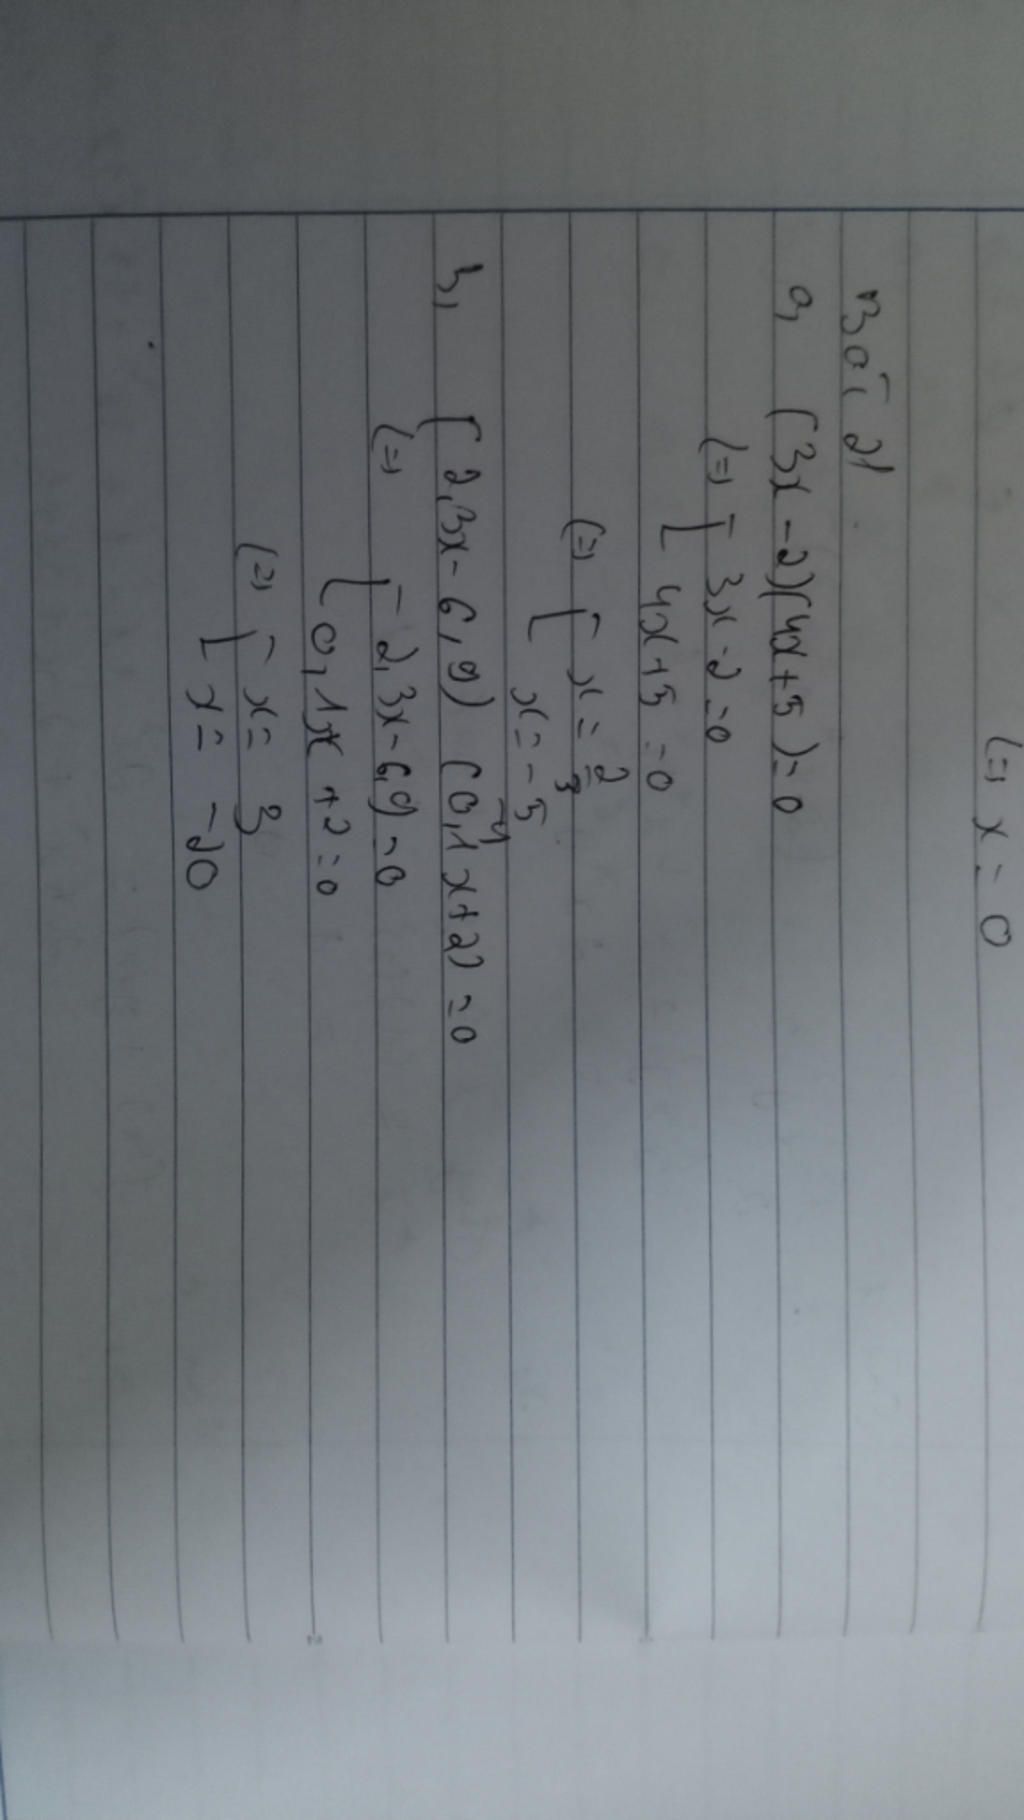 (=) x = 0
Bài 21
a, (3x - 2)(4x + 5) = 0
(=) [ 3x - 2 = 0
[ 4x + 5 = 0
(=) [ x = 2/3
[ x = -5/4
b, (2,3x - 6,9) (0,1x + 2) = 0
(=) [ 2,3x - 6,9 = 0
[ 0,1x + 2 = 0
(=) [ x = 3
[ x = -20